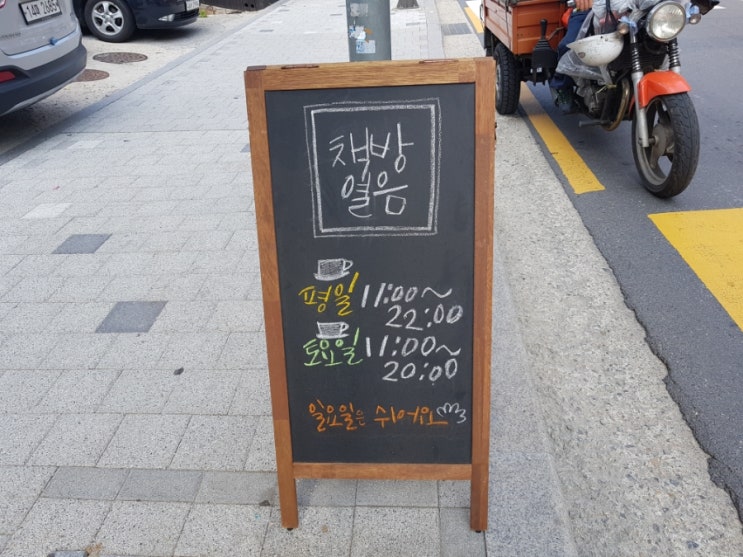 책방
열음
평일 11:00~
22:00
토요일 11:00~
20:00
일요일은 쉬어요